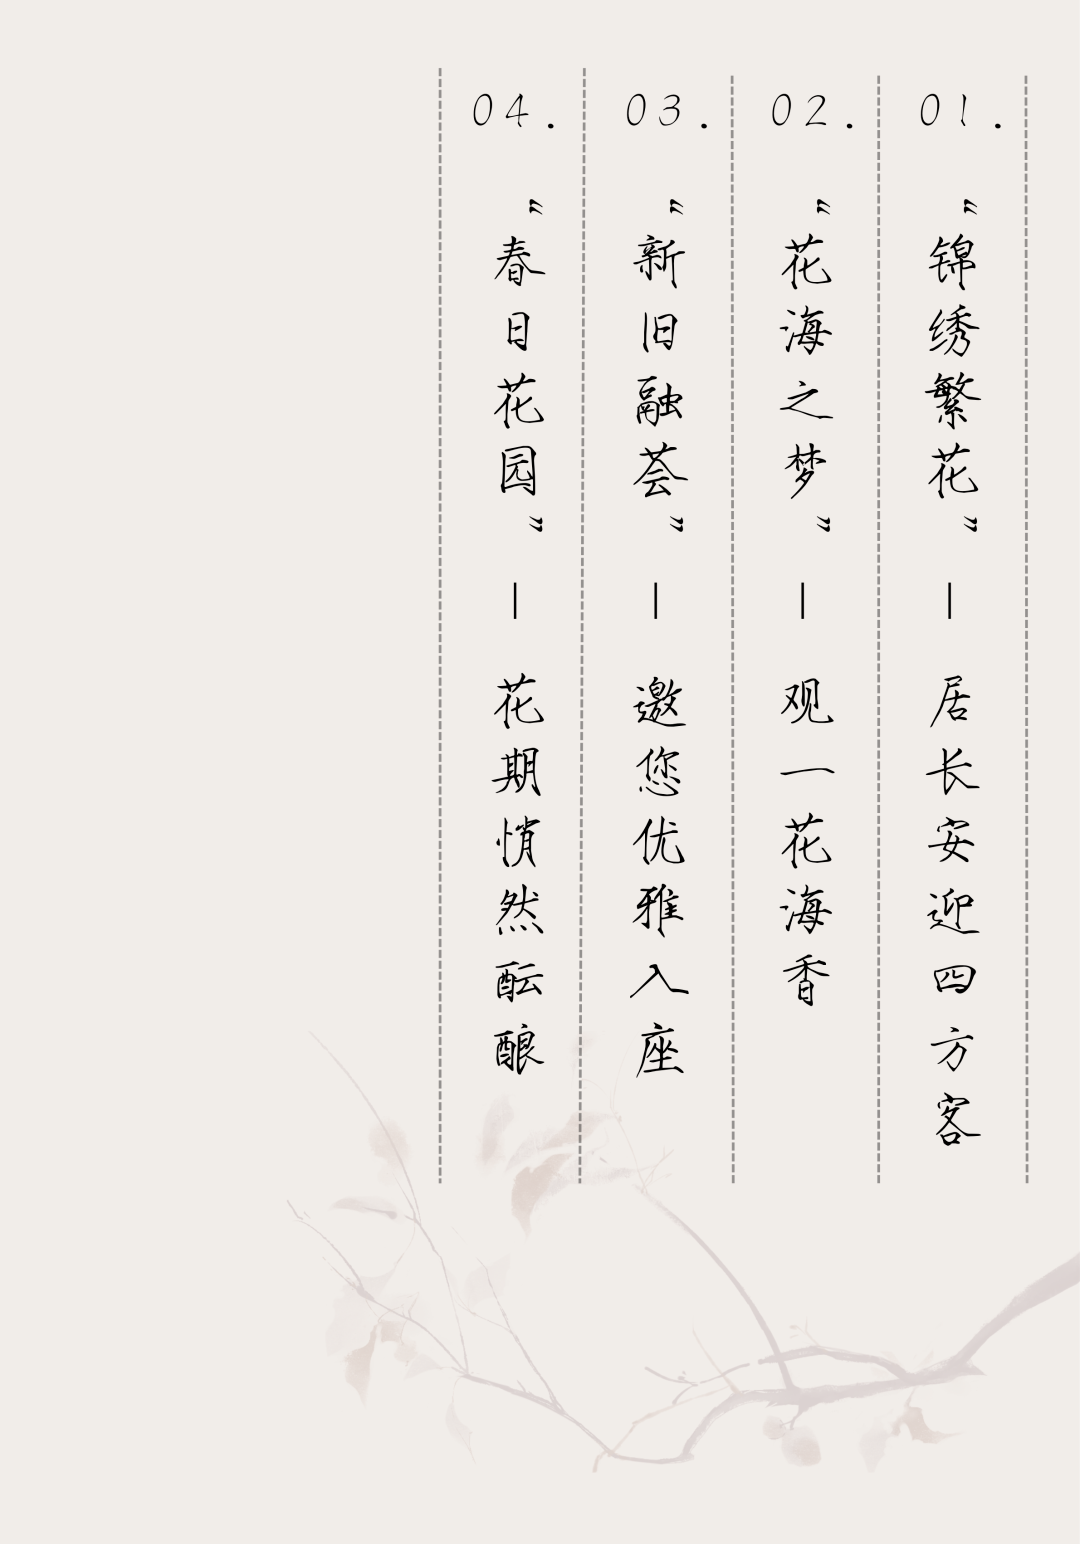 01.
“锦绣繁花”—居长安迎四方客
02.
“花海之梦”—观一花海香
03.
“新旧融荟”—邀您优雅入座
04.
“春日花园”—花期悄然酝酿